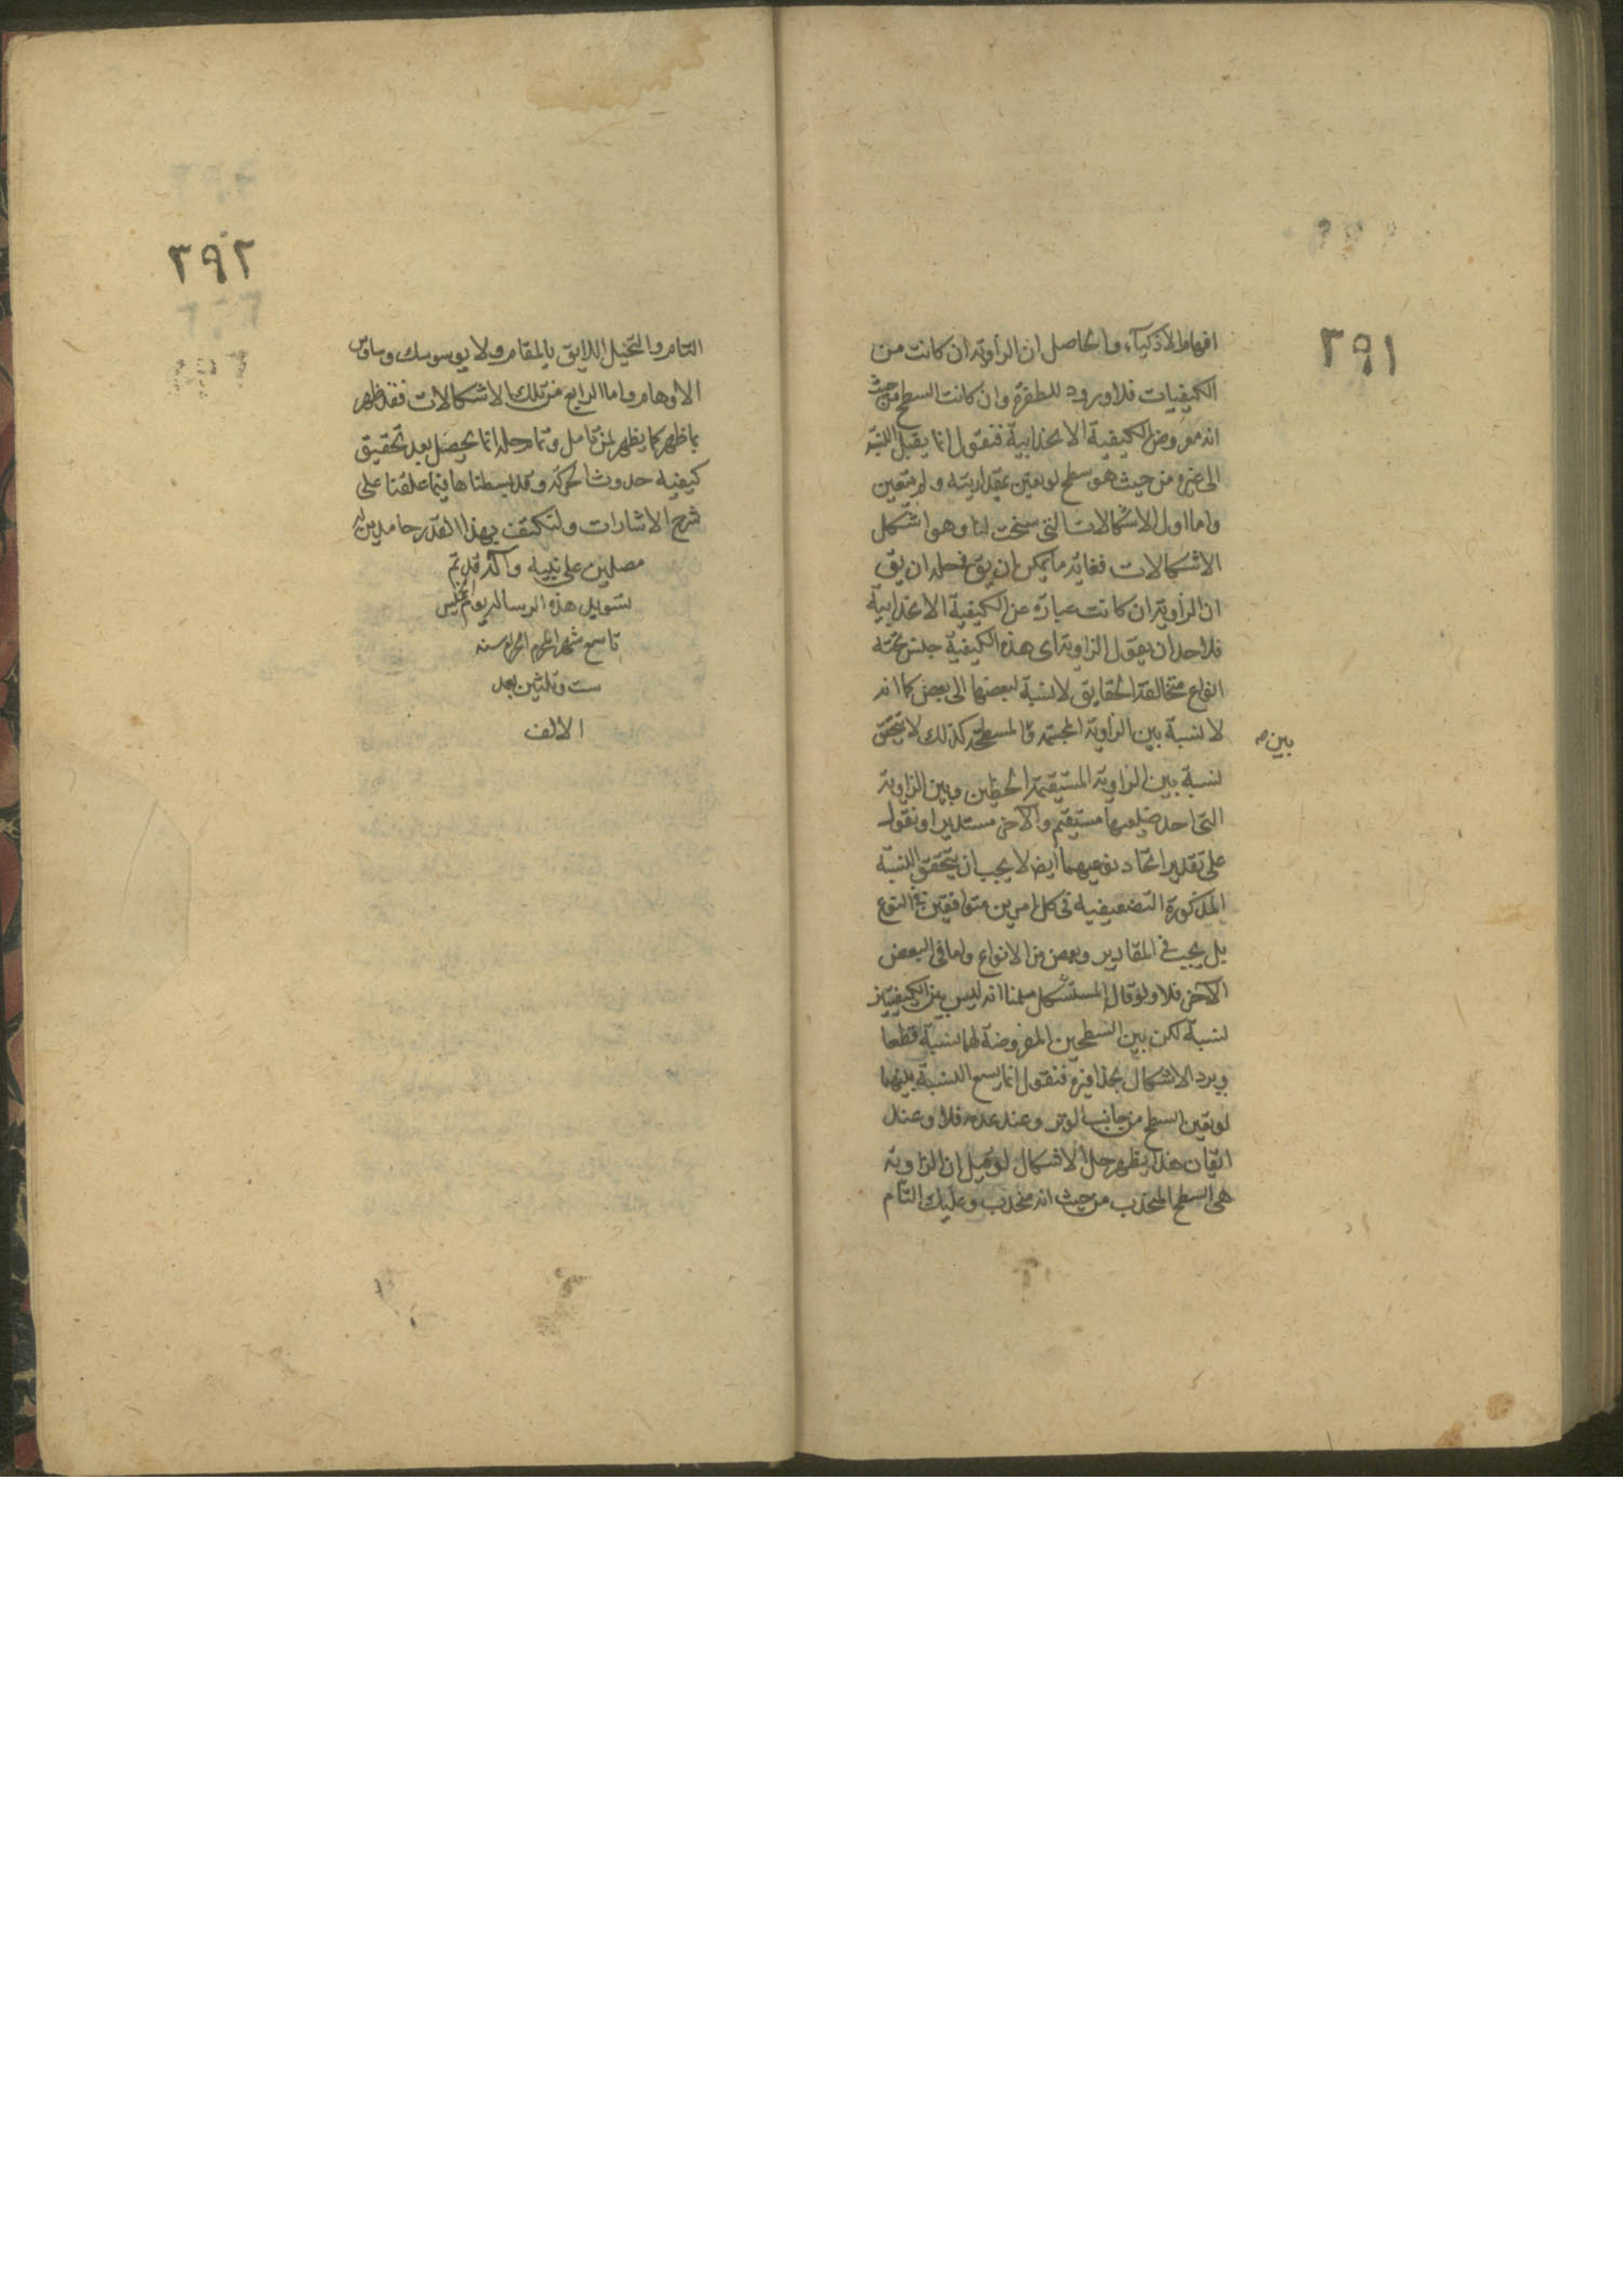 ٢٩١
افهام الاذكياء والحاصل ان الزاوية ان كانت من
الكيفيات فلا ورود للطفرة وان كانت السطح من حيث
انه معروض الكيفية الانحدابية فنقول انما يقبل النسبة
الى غيره من حيث هو سطح لو تعين بمقداريته ولم يتعين
واما اول الاشكالات التى سنحت لنا وهو اشكل
الاشكالات فغاية ما يمكن ان يق فى حله ان يق
ان الزاوية ان كانت عبارة عن الكيفية الانحدابية
فلاحد ان يقول الزاوية اى هذه الكيفية جنس تحته
انواع متخالفة الحقايق لا نسبة لبعضها الى بعض كما انه
لا نسبة بين الزاوية المجسمة والمسطحة كذلك لا يتحقق
بين
نسبة بين الزاوية المستقيمة الخطين وبين الزاوية
التى احد ضلعيها مستقيم والآخر مستدير او نقول
على تقدير اتحاد نوعيهما ايض لا يجب ان يتحقق النسبة
المذكورة التضعيفية فى كل امرين متوافقين فى النوع
بل يجب فى المقادير وبعض من الانواع واما فى البعض
الآخر فلا ولو قال المستشكل سلمنا انه ليس بين الكيفيتين
نسبة لكن بين السطحين المعروضة لهما نسبة قطعا
ويرد الاشكال بحذافيره فنقول انما يسع النسبة بينهما
لو تعين السطح من جانب الوتر وعند عدمه فلا وعند
اتقان هذا يظهر حل الاشكال لو قيل ان الزاوية
هى السطح المنحدب من حيث انه منحدب وعليك التام
٢٩٢
التام والتخيل اللايق بالمقام ولا يوسوسك وساوس
الاوهام واما الرابع من تلك الاشكالات فقد ظهر
بما ظهر كما يظهر لمن تامل وتمام حله انما يحصل بعد تحقيق
كيفية حدوث الحركة وقد بسطناها فيما علقنا على
شرح الاشارات ولنكتف بهذا القدر حامدين لله
مصلين على نبيه وآله قد تم
تسويد هذه الرسالة يوم الخميس
تاسع شهر المحرم الحرام سنه
ست وثلثين بعد
الالف